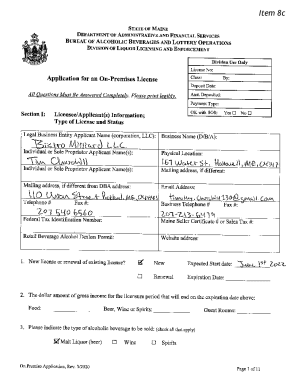 Item 8c
STATE OF MAINE
DEPARTMENT OF ADMINISTRATIVE AND FINANCIAL SERVICES
BUREAU OF ALCOHOLIC BEVERAGES AND LOTTERY OPERATIONS
DIVISION OF LIQUOR LICENSING AND ENFORCEMENT
Application for an On-Premises License
All Questions Must Be Answered Completely. Please print legibly.
Division Use Only
License No:
Class: By:
Deposit Date:
Amt. Deposited:
Payment Type:
OK with SOS: Yes ☐ No ☐
Section I: Licensee/Applicant(s) Information;
Type of License and Status
Legal Business Entity Applicant Name (corporation, LLC):
Business Name (D/B/A):
Bistro LLC
Individual or Sole Proprietor Applicant Name(s):
Physical Location:
Tim Churchill
167 Water St. Hallowell, ME, 04347
Individual or Sole Proprietor Applicant Name(s):
Mailing address, if different:
Mailing address, if different from DBA address:
Email Address:
110 Street
@gmail.com
Telephone # Fax #:
Business Telephone # Fax #:
207 540 6560
207-213-6479
Federal Tax Identification Number:
Maine Seller Certificate # or Sales Tax #:
Retail Beverage Alcohol Dealers Permit:
Website address:
1. New license or renewal of existing license? ☑ New Expected Start date: June 1st 2022
☐ Renewal Expiration Date:
2. The dollar amount of gross income for the licensure period that will end on the expiration date above:
Food: Beer, Wine or Spirits: Guest Rooms:
3. Please indicate the type of alcoholic beverage to be sold: (check all that apply)
☑ Malt Liquor (beer) ☐ Wine ☐ Spirits
Page 1 of 11